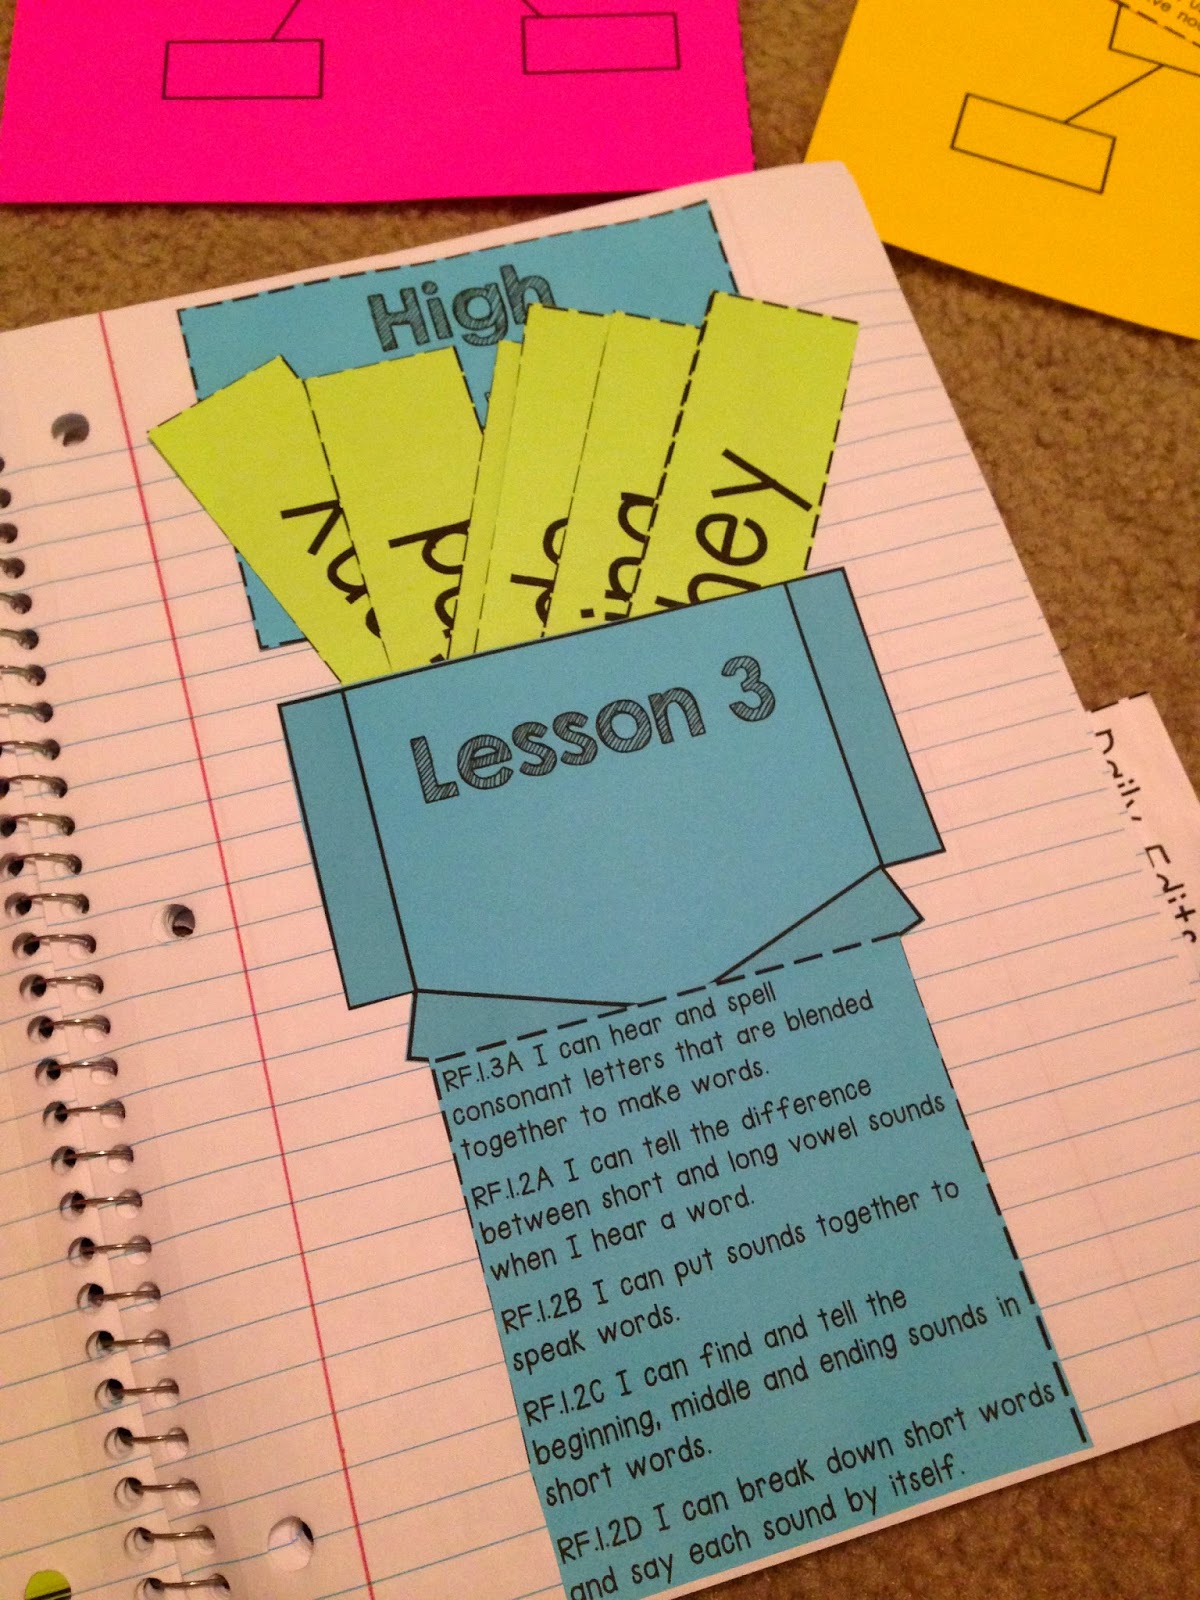 High
Lesson 3
RF.1.3A I can hear and spell
consonant letters that are blended
together to make words.
RF.1.2A I can tell the difference
between short and long vowel sounds
when I hear a word.
RF.1.2B I can put sounds together to
speak words.
RF.1.2C I can find and tell the
beginning, middle and ending sounds in
short words.
RF.1.2D I can break down short words
and say each sound by itself.